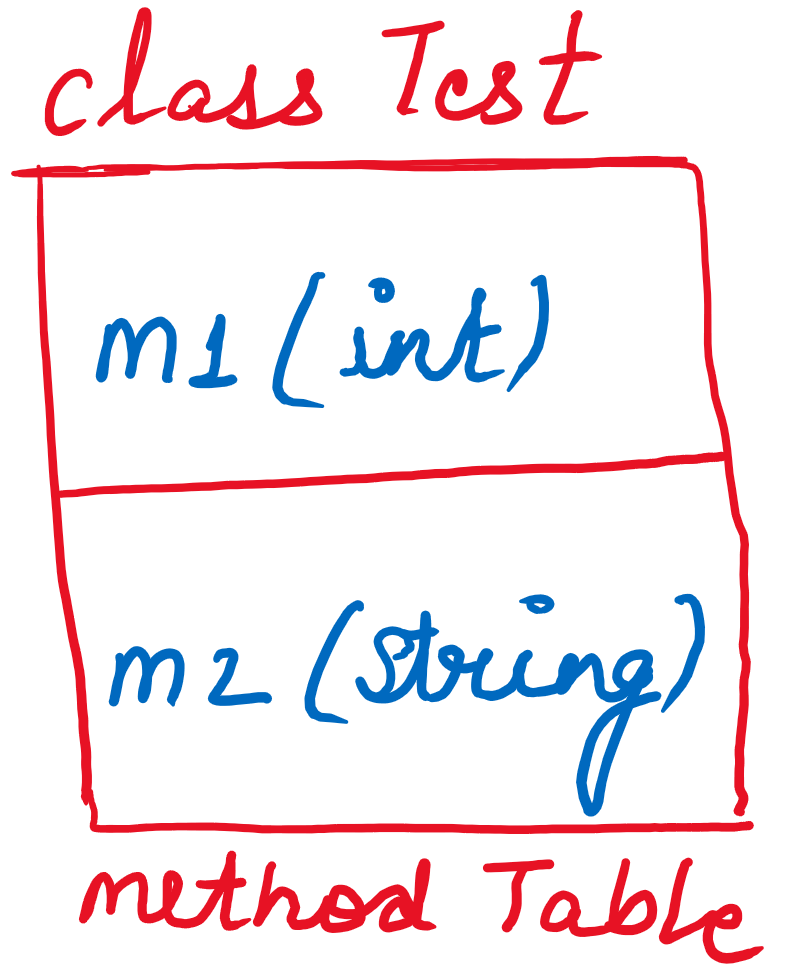 class Test
m1 (int)
m2 (string)
method Table